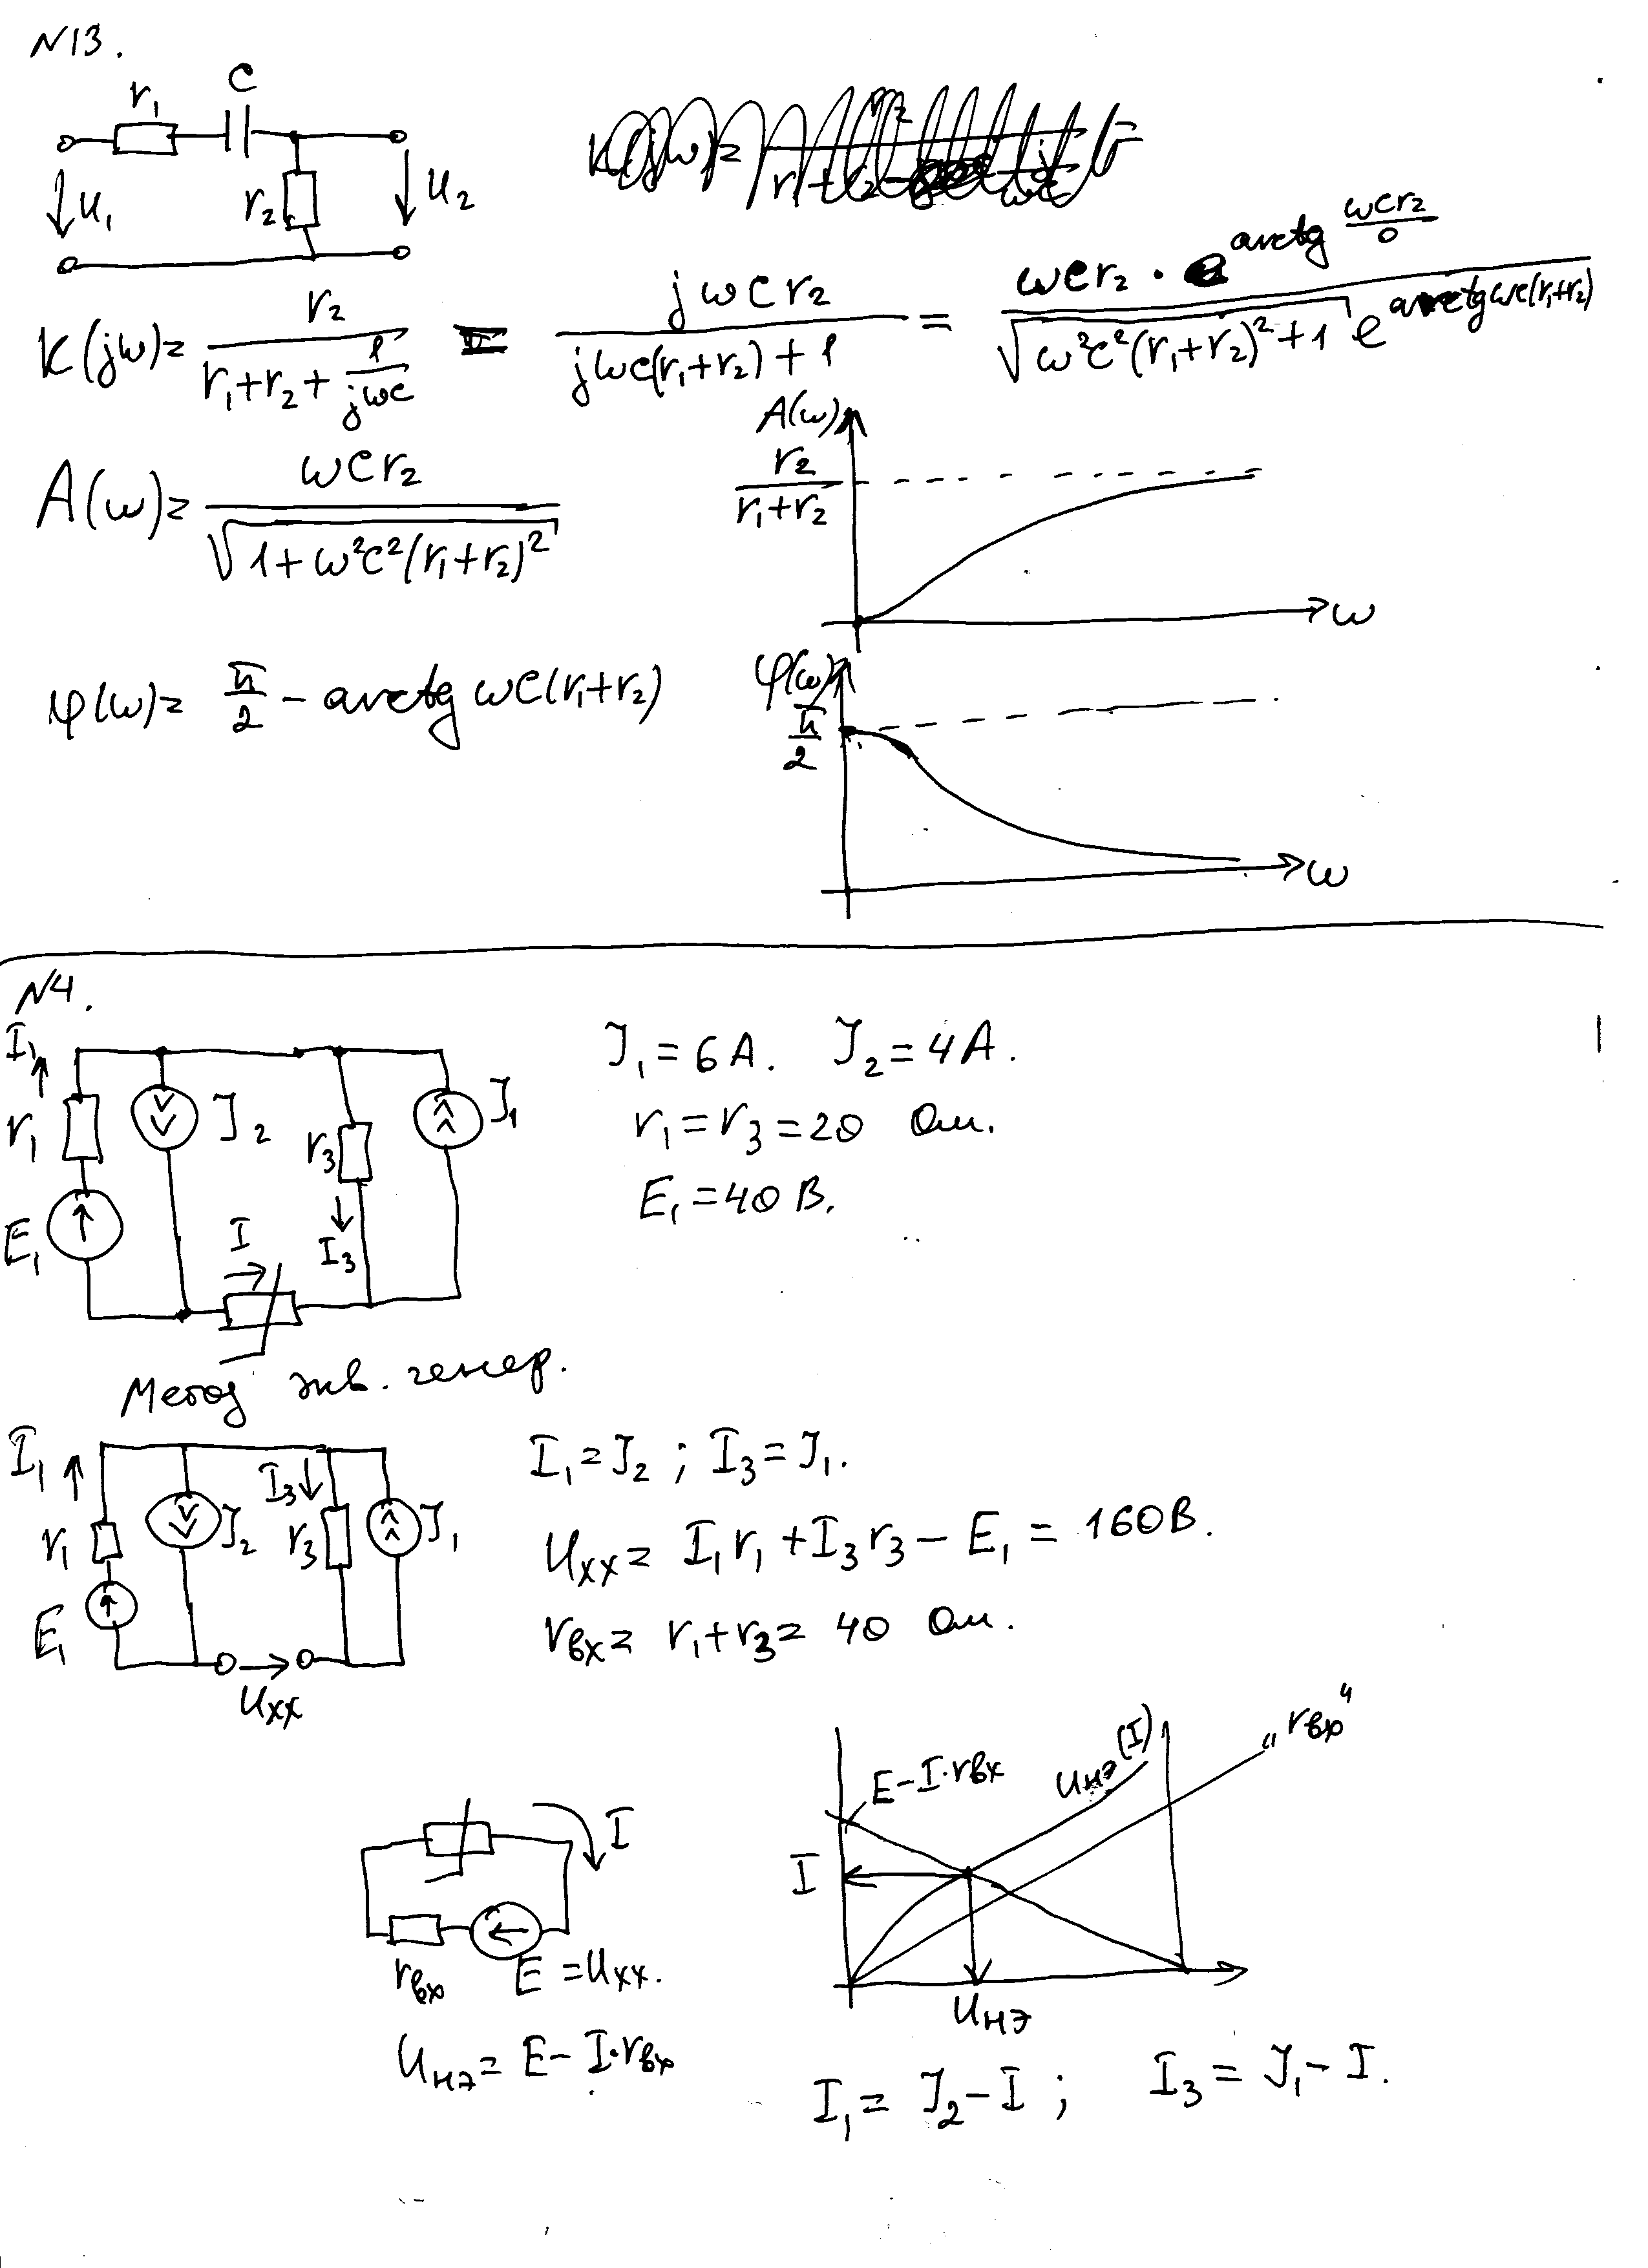 N13.
r₁ C
r₂
u₁ u₂
K(jω)= r₂ / (r₁+r₂+ 1/jωc) = jωcr₂ / (jωc(r₁+r₂)+1) = ωcr₂ · e^(arctg ωcr₂/0) / (√(ω²c²(r₁+r₂)²+1) e^(arctg ωc(r₁+r₂)))
A(ω)= ωcr₂ / √(1+ω²c²(r₁+r₂)²)
A(ω)
r₂/(r₁+r₂)
ω
φ(ω)= π/2 - arctg ωC(r₁+r₂)
φ(ω)
π/2
ω
N4.
I₁
r₁ J₂ r₃ J₁
E₁ I I₃
J₁=6A. J₂=4A.
r₁=r₃=20 Ом.
E₁=40В.
Метод экв. генер.
I₁ I₃
r₁ J₂ r₃ J₁
E₁
Uхх
I₁=J₂; I₃=J₁.
Uхх= I₁r₁+I₃r₃-E₁= 160В.
rвх= r₁+r₃= 40 Ом.
I
rвх E=Uхх.
Uнэ= E-I·rвх
E-I·rвх Uнэ(I) „rвх“
I
Uнэ
I₁= J₂-I; I₃= J₁-I.